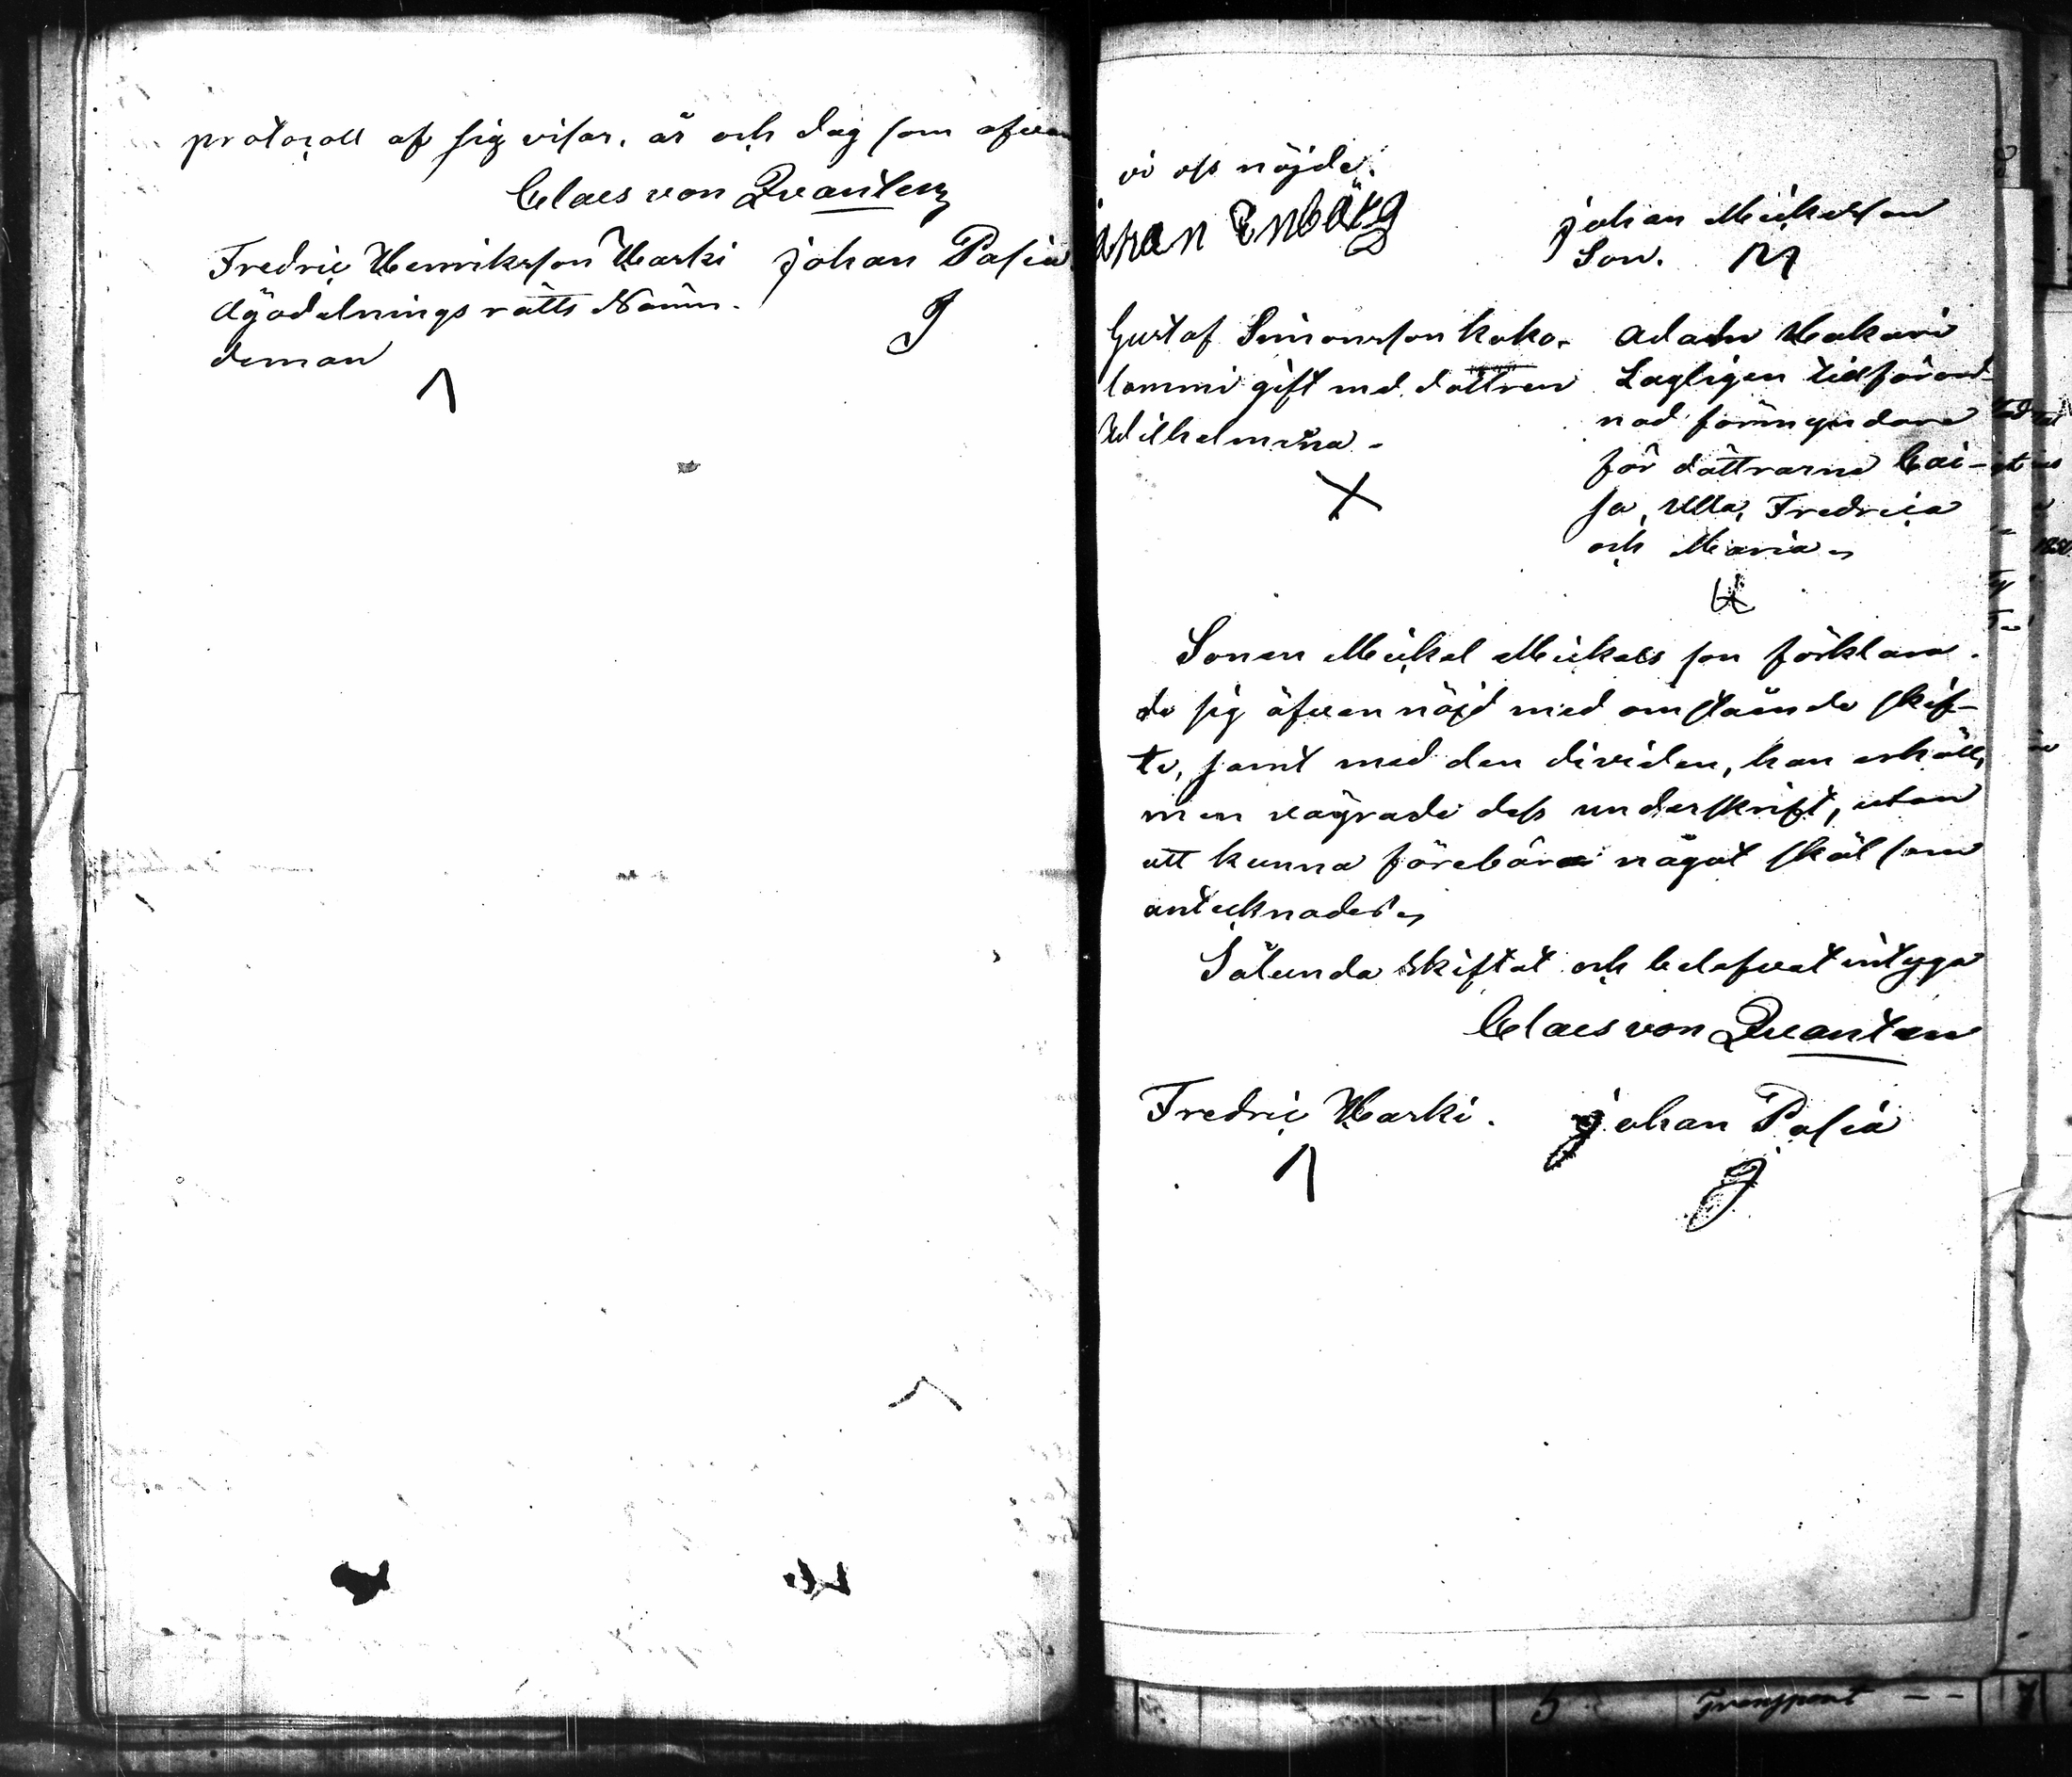 protocoll af sig visar, år och dag som ofvan
Claes von Qvanten
Fredric Henriksson Harki Johan Pasia
Ägodelnings rätts Nämn-
deman
vi oss nöjde.
Johan Mickelsson
Son. M
Enbärg
Gustaf Simonsson Koko-
lammi gift med dottren
Wilhelmina-
X
Adam Hakari
Lagligen tillförord-
nad förmyndare
för döttrarne Cai-
sa, Ulla, Fredrica
och Maria
Sonen Mickel Mickelsson förklara-
de sig äfven nöjd med omstående skif-
te, samt med den dividen, han erhöll,
men vägrade dess underskrift, utan
att kunna förebära något skäl som
antecknades
Sålunda skiftat och belefvat intyga
Claes von Qvanten
Fredric Harki. Johan Pasia
5 Transport - -